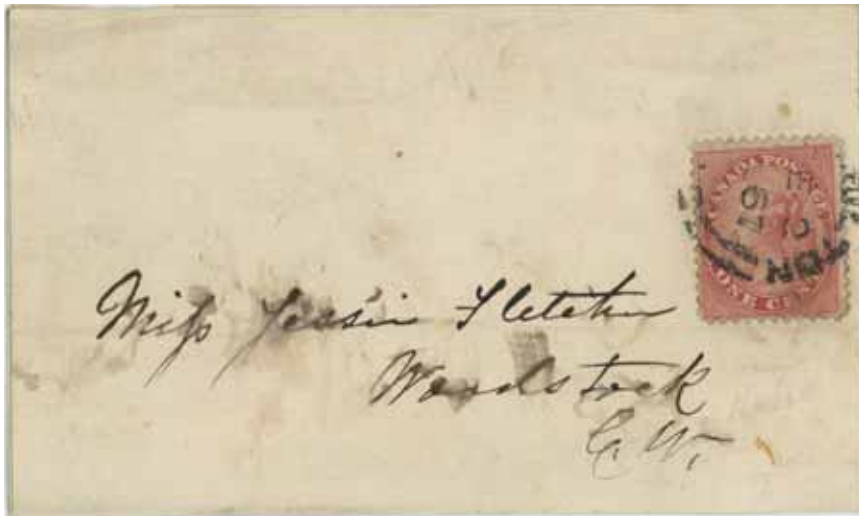 CANADA POSTAGE
ONE CENT
TOR
Miss Jessie Fletcher
Woodstock
C. W.